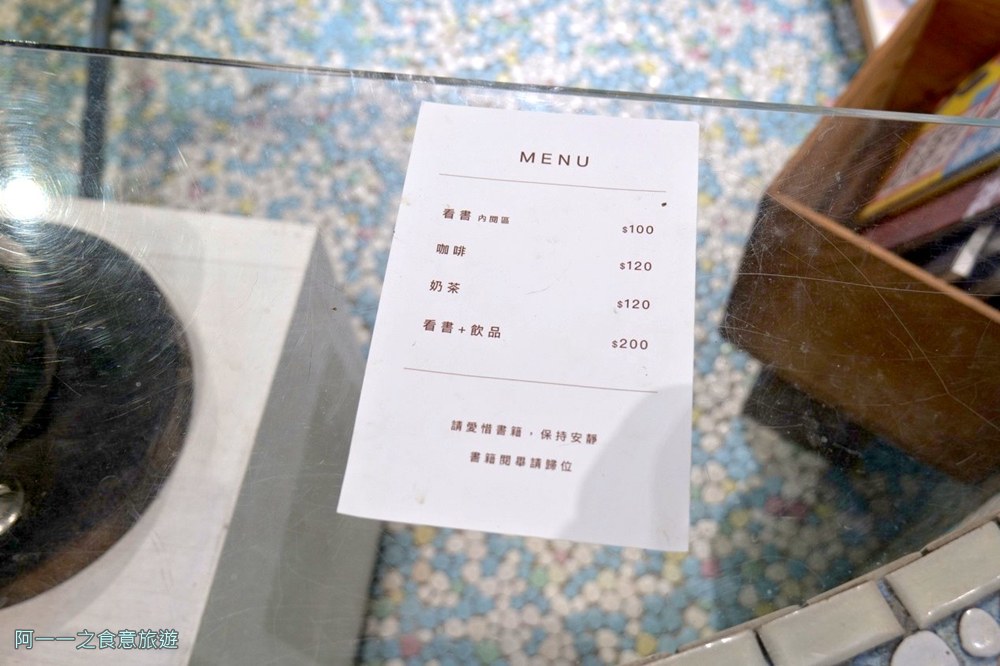 MENU
看書 內閱區 $100
咖啡 $120
奶茶 $120
看書+飲品 $200
請愛惜書籍，保持安靜
書籍閱畢請歸位
阿一一之食意旅遊